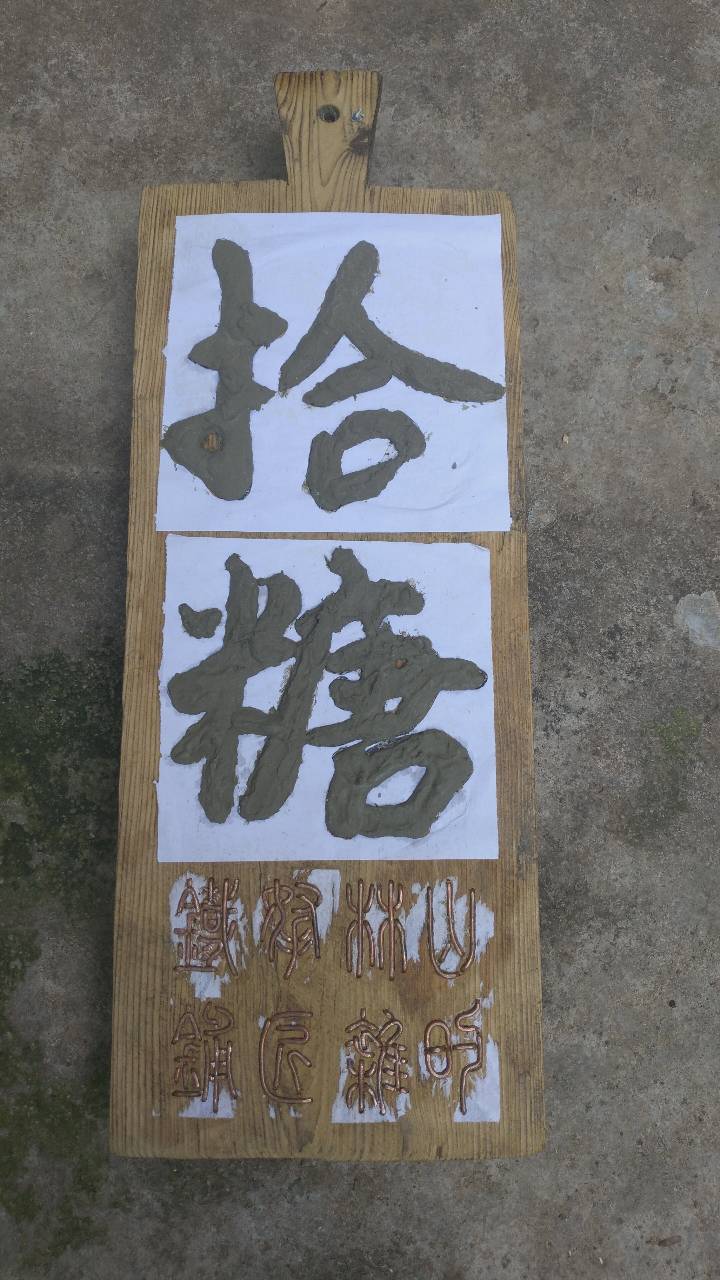 拾
糖
山林鐵
的雜匠鋪